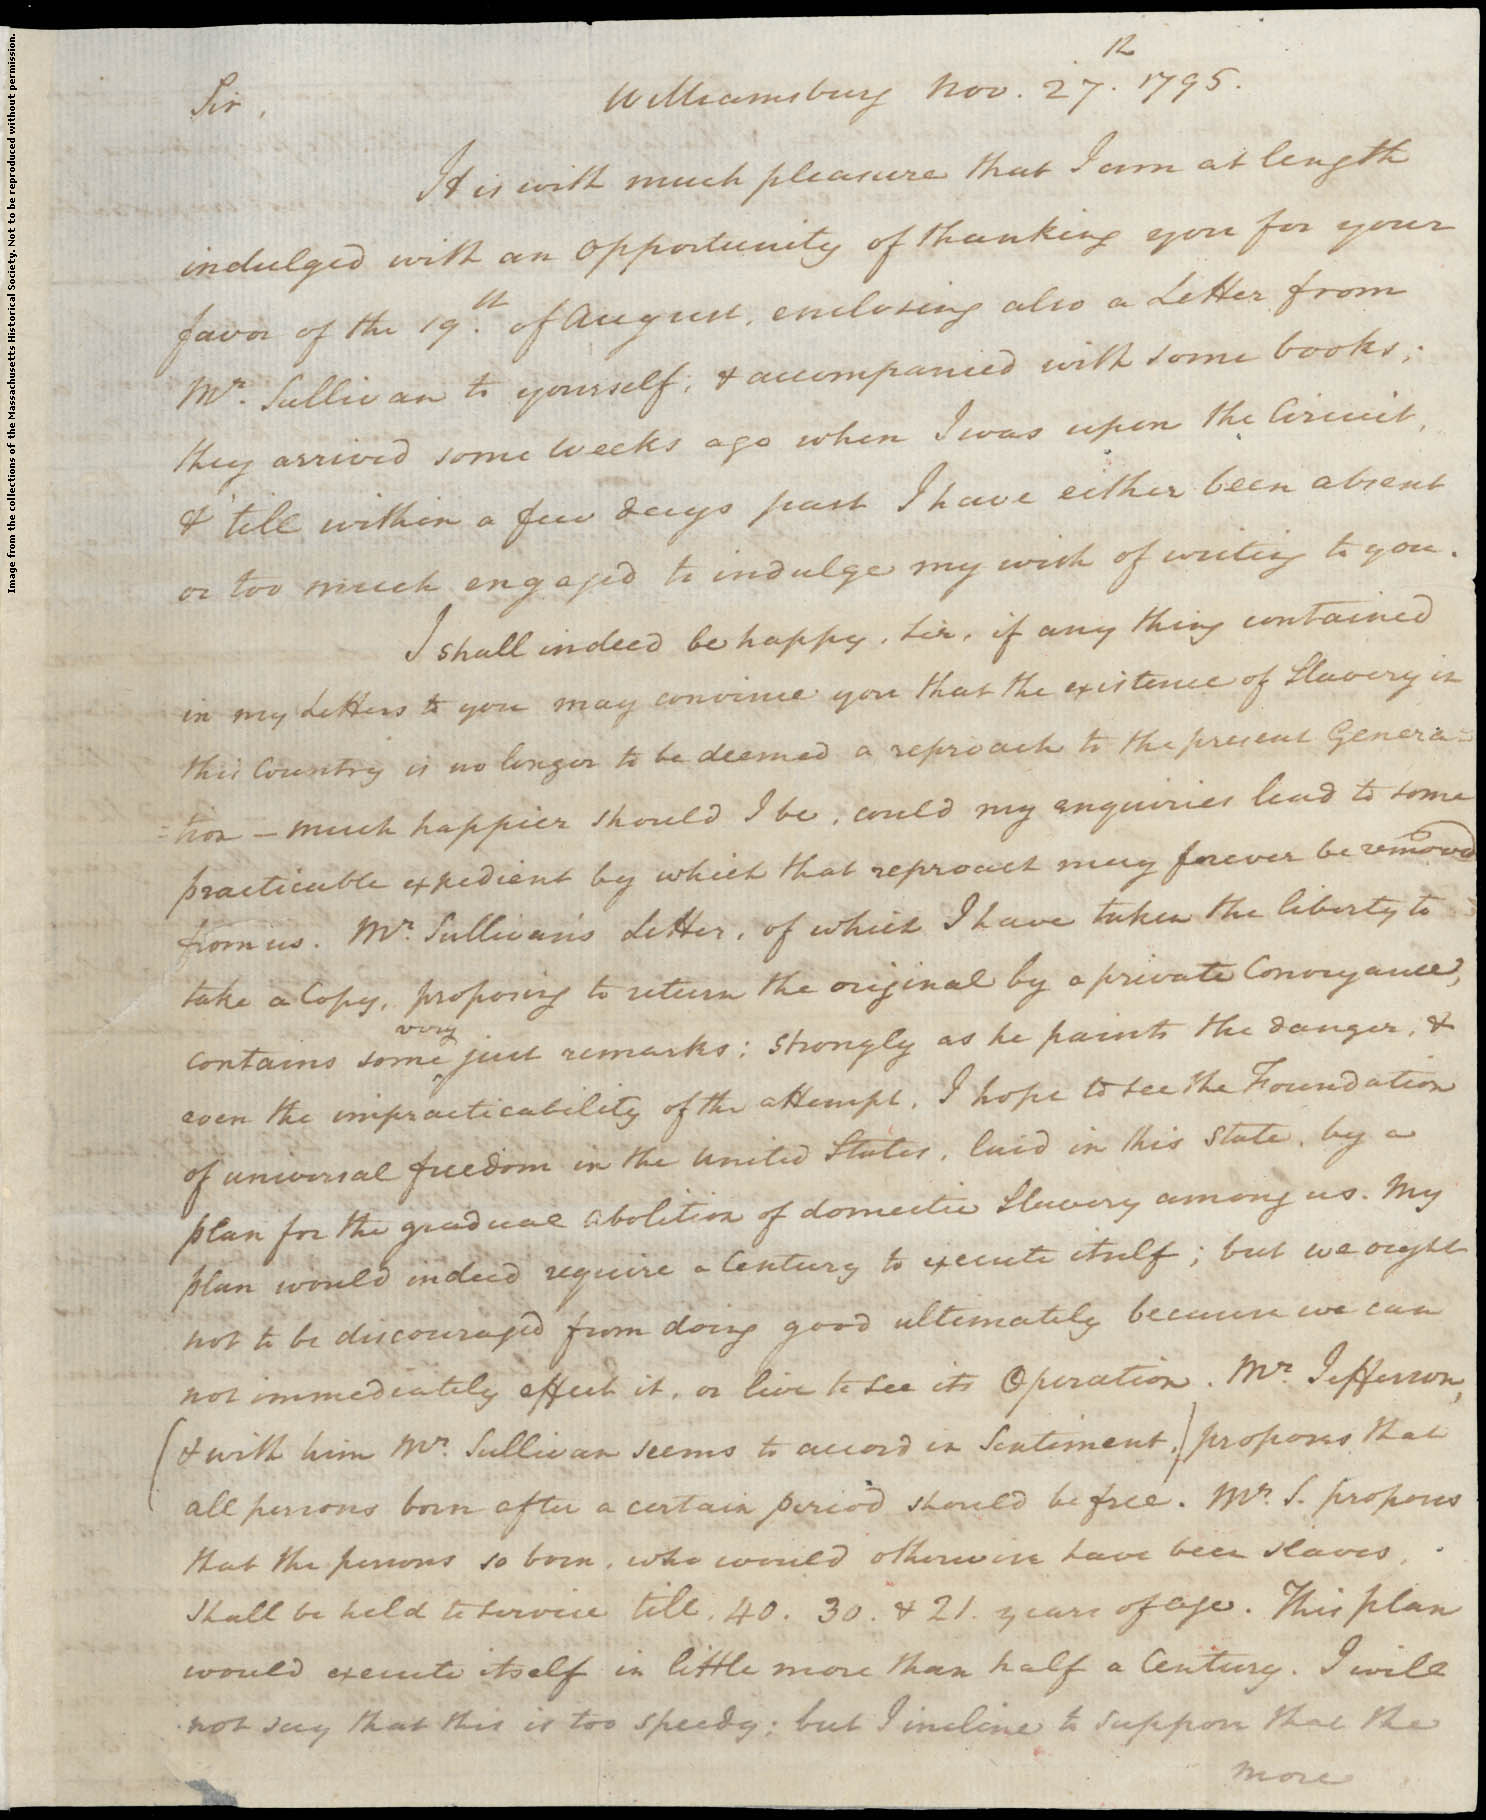 Image from the collections of the Massachusetts Historical Society. Not to be reproduced without permission.
Sir, Williamsburg Nov. 27.th 1795.
It is with much pleasure that I am at length
indulged with an opportunity of thanking you for your
favor of the 19.th of August, enclosing also a Letter from
Mr. Sullivan to yourself; & accompanied with some books;
they arrived some weeks ago when I was upon the Circuit,
& 'till within a few days past I have either been absent
or too much engaged to indulge my wish of writing to you.
I shall indeed be happy, Sir, if any thing contained
in my Letters to you may convince you that the existence of Slavery in
this Country is no longer to be deemed a reproach to the present Genera=
=tion — much happier should I be, could my enquiries lead to some
practicable expedient by which that reproach may forever be removed
from us. Mr. Sullivan's Letter, of which I have taken the liberty to
take a Copy, proposing to return the original by a private Conveyance,
contains some very just remarks: strongly as he paints the danger, &
even the impracticability of the attempt, I hope to see the Foundation
of universal freedom in the United States, laid in this State, by a
plan for the gradual abolition of domestic Slavery among us. My
plan would indeed require a Century to execute itself; but we ought
not to be discouraged from doing good ultimately because we can
not immediately effect it, or live to see its Operation. Mr. Jefferson,
(& with him Mr. Sullivan seems to accord in Sentiment,) proposes that
all persons born after a certain period should be free. Mr. S. proposes
that the persons so born, who would otherwise have been slaves,
shall be held to service till, 40. 30. & 21. years of age. This plan
would execute itself in little more than half a Century. I will
not say that this is too speedy; but I incline to suppose that the
more